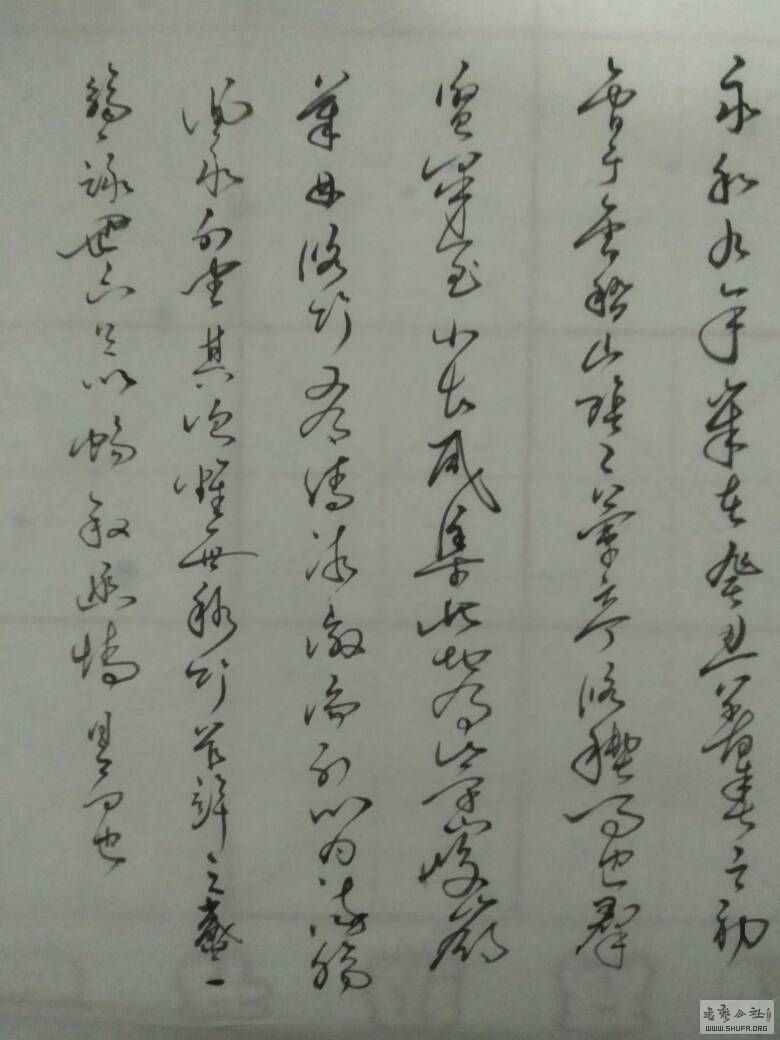 永和九年歲在癸丑暮春之初
會于會稽山陰之蘭亭脩稧事也群
賢畢至少長咸集此地有崇山峻嶺
茂林脩竹又有清流激湍引以為流觴
流水列坐其次雖無絲竹管絃之盛一
觴一詠亦足以暢敘幽情是日也
書藝公社
WWW.SHUFA.ORG